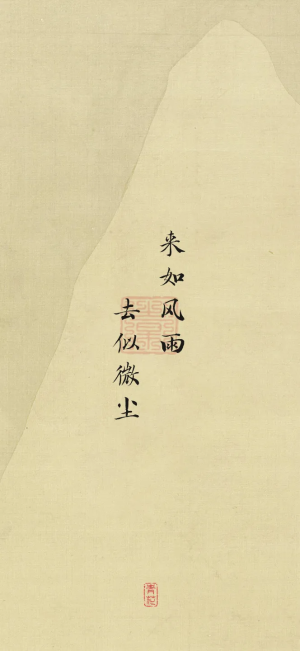 来如风雨
去似微尘